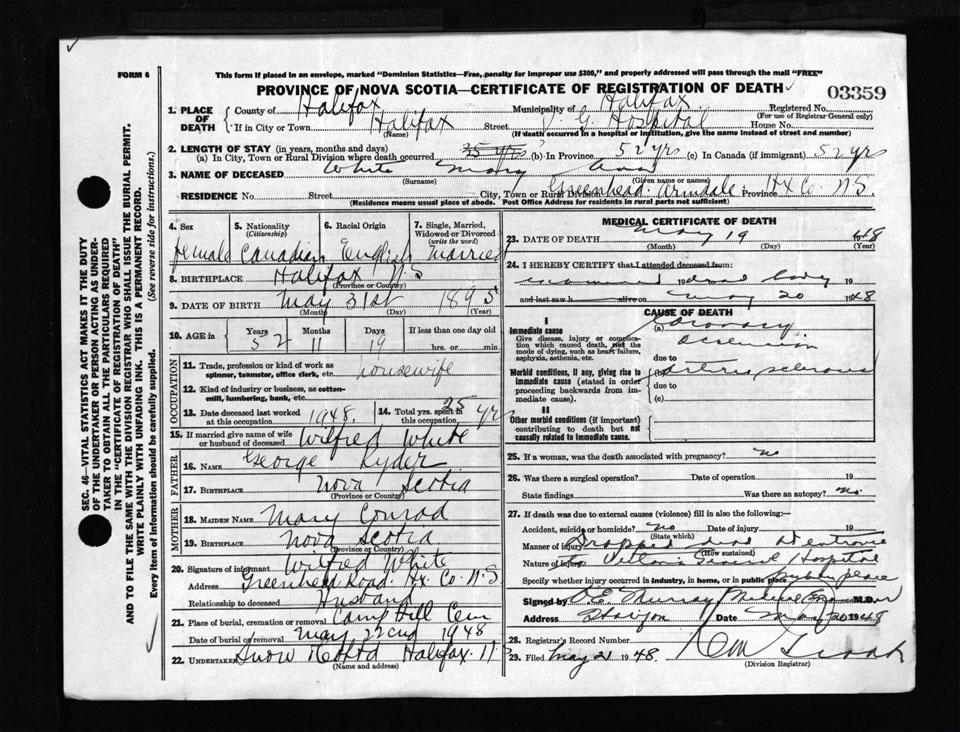 FORM 6
This form if placed in an envelope, marked "Dominion Statistics—Free, penalty for improper use $300," and properly addressed will pass through the mail "FREE"
PROVINCE OF NOVA SCOTIA—CERTIFICATE OF REGISTRATION OF DEATH
03359
1. PLACE OF DEATH { County of Halifax Municipality of Halifax Registered No.
(For use of Registrar General only)
If in City or Town Halifax Street V. G. Hospital House No.
(Name) (If death occurred in a hospital or institution, give the name instead of street and number)
2. LENGTH OF STAY (in years, months and days)
(a) In City, Town or Rural Division where death occurred 25 yrs (b) In Province 52 yrs (c) In Canada (if immigrant) 52 yrs
3. NAME OF DECEASED White Mary Ann
(Surname) (Given name or names)
RESIDENCE No. Street City, Town or Rural Division Greenhead Armdale Province Hx Co. N.S.
(Residence means usual place of abode. Post Office Address for residents in rural parts not sufficient)
4. Sex Female
5. Nationality (Citizenship) Canadian
6. Racial Origin English
7. Single, Married, Widowed or Divorced (write the word) Married
8. BIRTHPLACE Halifax N S
(Province or Country)
9. DATE OF BIRTH May 31st 1895
(Month) (Day) (Year)
10. AGE in Years 52 Months 11 Days 19 If less than one day old
hrs. or min.
OCCUPATION
11. Trade, profession or kind of work as spinner, teamster, office clerk, etc. housewife
12. Kind of industry or business, as cotton-mill, lumbering, bank, etc.
13. Date deceased last worked at this occupation 1948
14. Total yrs. spent in this occupation 25 yrs
15. If married give name of wife or husband of deceased Wilfred White
FATHER
16. NAME George Ryder
17. BIRTHPLACE Nova Scotia
(Province or Country)
MOTHER
18. MAIDEN NAME Mary Conrad
19. BIRTHPLACE Nova Scotia
(Province or Country)
20. Signature of informant Wilfred White
Address Greenhead Road. Hx. Co. N.S
Relationship to deceased Husband
21. Place of burial, cremation or removal Camp Hill Cem
Date of burial or removal May 22nd 1948
22. UNDERTAKER Snow & Co Ltd Halifax. N.S
(Name and address)
MEDICAL CERTIFICATE OF DEATH
23. DATE OF DEATH May 19 1948
(Month) (Day) (Year)
24. I HEREBY CERTIFY that I attended deceased from:
examined dead body 19
and last saw h alive on May 20 1948
CAUSE OF DEATH
I
Immediate cause
Give disease, injury or complication which caused death, not the mode of dying, such as heart failure, asphyxia, asthenia, etc.
(a) Coronary occlusion
due to
Morbid conditions, if any, giving rise to immediate cause (stated in order proceeding backwards from immediate cause).
(b) Arterio sclerosis
due to
(c)
II
Other morbid conditions (if important) contributing to death but not causally related to immediate cause.
25. If a woman, was the death associated with pregnancy? no
26. Was there a surgical operation? Date of operation 19
State findings Was there an autopsy? no
27. If death was due to external causes (violence) fill in also the following:—
Accident, suicide or homicide? no Date of injury 19
(State which)
Manner of injury Dropped dead
(How sustained)
Nature of injury Victoria General Hospital
Specify whether injury occurred in industry, in home, or in public place public place
Signed by E. Murray M.D.
Address Halifax Date May 20 1948
28. Registrar's Record Number
29. Filed May 21 1948.
(Division Registrar)
SEC. 46—VITAL STATISTICS ACT MAKES IT THE DUTY
OF THE UNDERTAKER OR PERSON ACTING AS UNDERTAKER
TO OBTAIN ALL THE PARTICULARS REQUIRED
IN THE "CERTIFICATE OF REGISTRATION OF DEATH"
AND TO FILE THE SAME WITH THE DIVISION REGISTRAR WHO SHALL ISSUE THE BURIAL PERMIT.
WRITE PLAINLY WITH UNFADING INK. THIS IS A PERMANENT RECORD.
Every item of information should be carefully supplied. (See reverse side for instructions.)